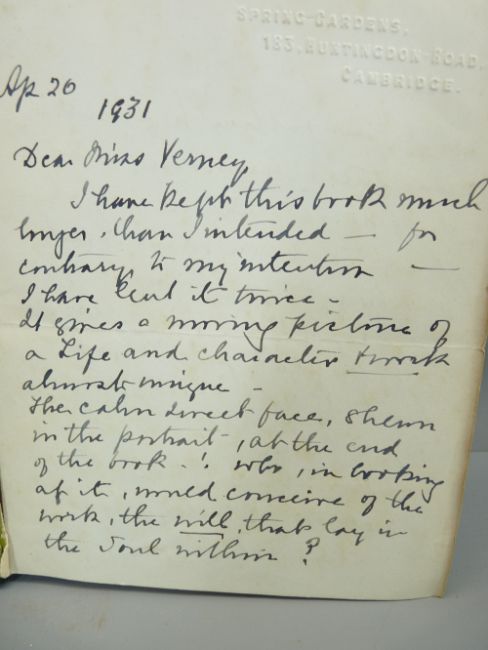 SPRING-GARDENS,
183, HUNTINGDON-ROAD,
CAMBRIDGE.
Ap 20
1931
Dear Miss Verney,
I have kept this book much
longer than I intended — for
contrary to my intention —
I have lent it twice -
It gives a moving picture of
a Life and character & work
almost unique -
The calm sweet face, shewn
in the portrait, at the end
of the book -! who, in looking
at it, would conceive of the
work, the will, that lay in
the Soul within?